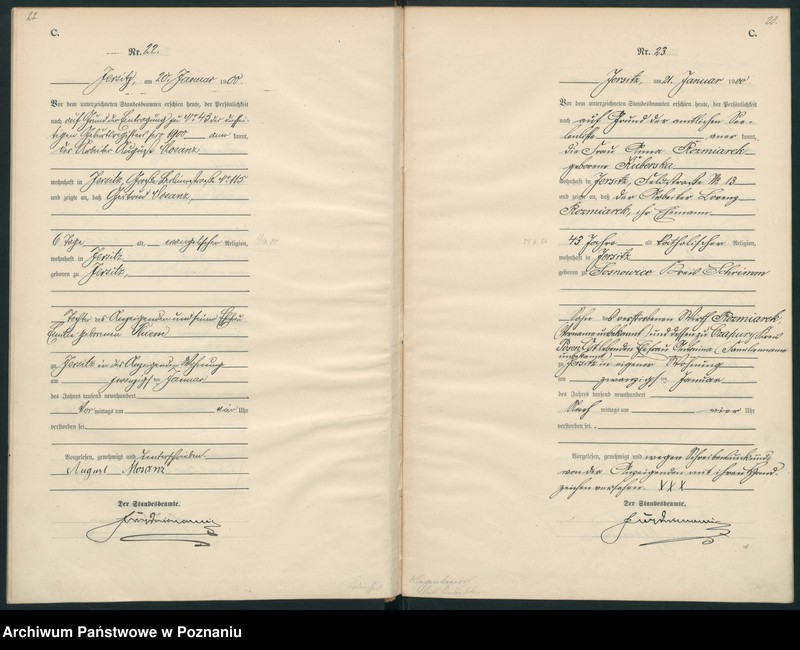 22
C.
Nr. 22.
Jersitz, am 20. Januar 1900
Vor dem unterzeichneten Standesbeamten erschien heute, der Persönlichkeit
nach auf Grund der Eintragung zu No 43 des diesſei-
tigen Geburtsregisters pro 1900 kannt,
der Arbeiter August Mosanz
wohnhaft in Jersitz, Große Berlinerstraße No 115
und zeigte an, daß Gertrud Mosanz,
6 Tage alt, evangelischer Religion,
wohnhaft in Jersitz
geboren zu Jersitz,
Tochter des Anzeigenden und seiner Ehefrau
Emilie geborenen Thiem
zu Jersitz in des Anzeigenden Wohnung
am zwanzigsten Januar
des Jahres tausend neunhundert
Vor mittags um vier Uhr
verstorben sei.
Vorgelesen, genehmigt und unterschrieben
August Mosanz
Der Standesbeamte.
23.
C.
Nr. 23
Jersitz, am 21. Januar 1900
Vor dem unterzeichneten Standesbeamten erschien heute, der Persönlichkeit
nach auf Grund der amtlichen See-
lenliste aner kannt,
die Frau Anna Rozmiarek
geborene Kuberska
wohnhaft in Jersitz, Feldstraße No 13
und zeigte an, daß der Arbeiter Lorenz
Rozmiarek, ihr Ehemann
43 Jahre alt katholischer Religion,
wohnhaft in Jersitz
geboren zu Sosnowiec Kreis Schrimm
Sohn des verstorbenen Wirth Rozmiarek,
(Vorname unbekannt) und dessen zu Czapury Kreis
Posen Ost lebenden Ehefrau Antonina (Familienname
unbekannt)
zu Jersitz in eigener Wohnung
am zwanzigsten Januar
des Jahres tausend neunhundert
Nach mittags um vier Uhr
verstorben sei.
Vorgelesen, genehmigt und wegen Schreibensunkunde
von der Anzeigenden mit ihrem Hand-
zeichen versehen. XXX
Der Standesbeamte.
Archiwum Państwowe w Poznaniu